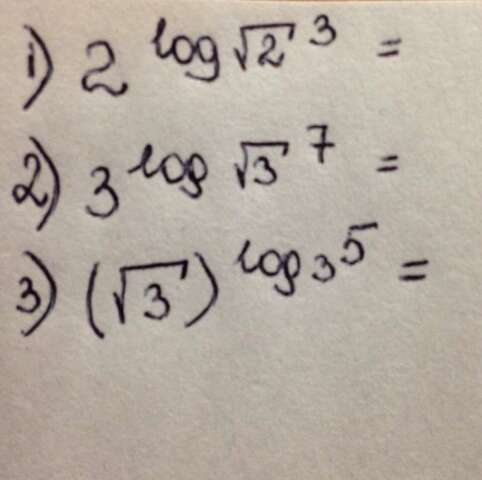 1) 2^{log_{√2} 3} =
2) 3^{log_{√3} 7} =
3) (√3)^{log_3 5} =